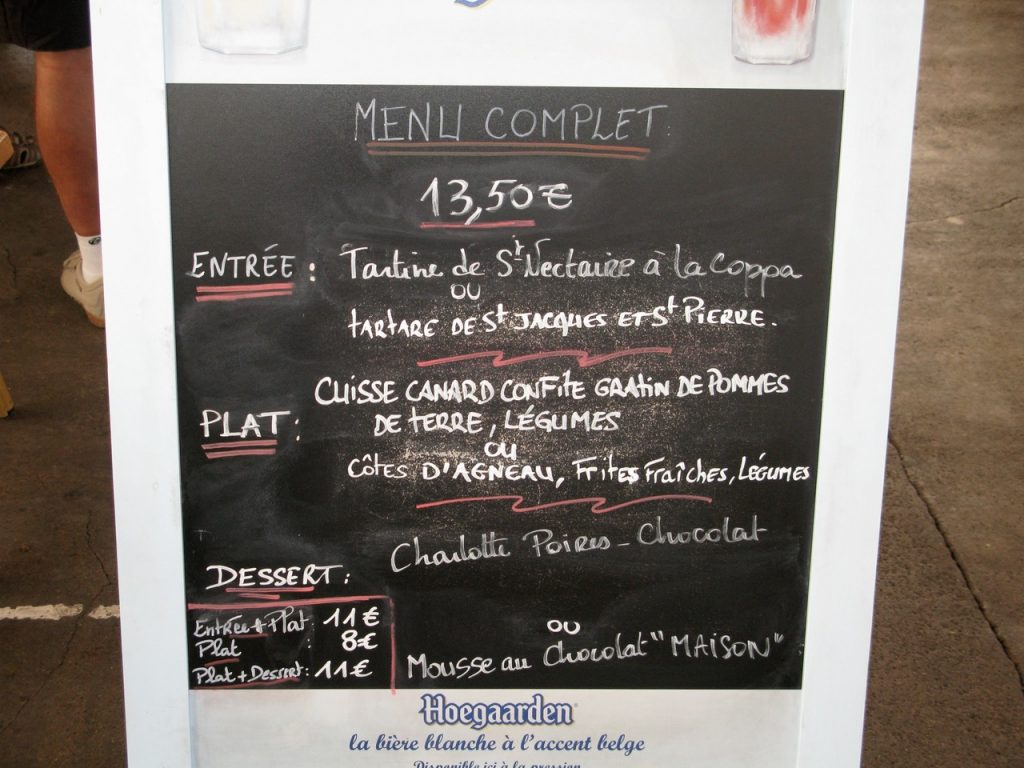 MENU COMPLET:
13,50€
ENTRÉE : Tartine de St Nectaire à la Coppa
OU
tARtARE DE St JACQUES ET St PIERRE.
CUISSE CANARD CONFITE GRATIN DE POMMES
PLAT : DE tERRE, LÉGUMES
OU
CÔTES D'AGNEAU, FRITES FRAÎCHES, LÉGUMES
Charlotte Poires - Chocolat
DESSERT :
Entrée + Plat : 11€
Plat : 8€
Plat + Dessert : 11€
OU
Mousse au Chocolat "MAISON"
Hoegaarden
la bière blanche à l'accent belge
Disponible ici à la pression